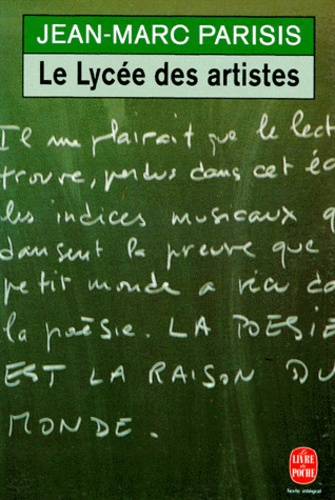 JEAN-MARC PARISIS
Le Lycée des artistes
Il me plairait que le lect
trouve, perdus dans cet éc
les indices musicaux q
dansent la preuve que
petit monde a vécu da
la poésie. LA POÉSIE
EST LA RAISON DU
MONDE.
LE LIVRE DE POCHE
Texte intégral